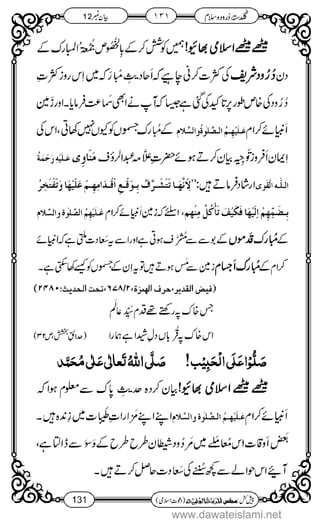 گلدستہ دُرود و سلام ۱۳۱ بیان نمبر 12
میٹھے میٹھے اسلامی بھائیو! ہمیں کوشش کر کے بِالْخُصُوْص جُمُعَۃُ المبارک کے
دن دُرُود شریف کی کثرت کرنی چاہیے کہ احادیثِ مُبارَکہ میں اس روز کثرتِ
دُرُود کی خاص طور پر تاکید کی گئی ہے جیسا کہ آپ نے ابھی سماعت فرمایا۔ اور زمین
انبیائے کرام عَلَیْہِمُ الصَّلٰوۃُ وَالسَّلام کے مُبارک جسموں کو کیوں نہیں کھاتی، اس کی
ایمان افروز توجیہ بیان کرتے ہوئے حضرت علّامہ عبدُالرَّءُوف مَنَاوِی عَلَیْہِ رَحْمَۃُ
اللّٰہِ الْقَوِی ارشاد فرماتے ہیں: ’’لِاَنَّهَا تَتَشَرَّفُ بِوَقْعِ اَقْدَامِهِمْ عَلَيْهَا وَتَفْتَخِرُ
بِضَمِّهِمْ اِلَيْهَا فَكَيْفَ تَأْكُلُ مِنْهم، اسلئے کہ زمین انبیائے کرام عَلَیْہِمُ الصَّلٰوۃُ وَالسَّلام
کے مُبارَک قدموں کے بوسے سے مُشرَّف ہوتی ہے اور اسے یہ سعادت ملتی ہے کہ انبیائے
کرام کے مُبارک اَجسام زمین سے مَس ہوتے ہیں تو یہ ان کے جسموں کو کیسے کھا سکتی ہے۔
(فیض القدیر، حرف الهمزة، ۶۷۸/۲، تحت الحدیث: ۲۴۸۰)
جس خاک پہ رکھتے تھے قدم سَیِّدِ عالَم
اس خاک پہ قُرباں دلِ شیدا ہے ہمارا (حدائقِ بخشش، ص۳۲)
صَلُّوْا عَلَی الْحَبِیْب! صَلَّی اللّٰہُ تَعَالٰی عَلٰی مُحَمَّد
میٹھے میٹھے اسلامی بھائیو! بیان کردہ حدیثِ پاک سے معلوم ہوا کہ
انبیائے کرام عَلَیْہِمُ الصَّلٰوۃُ وَالسَّلام اپنے اپنے مزارات میں حیات زندہ ہیں۔
بَعْض اَوقات اس مُعامَلے میں شیطان مردود طرح طرح کے وَسوَسے ڈالتا ہے،
آئیے اس حوالے سے کچھ سُننے کی سعادت حاصل کرتے ہیں۔
131 پیش کش: مجلس المدینۃ العلمیۃ (دعوتِ اسلامی)
www.dawateislami.net